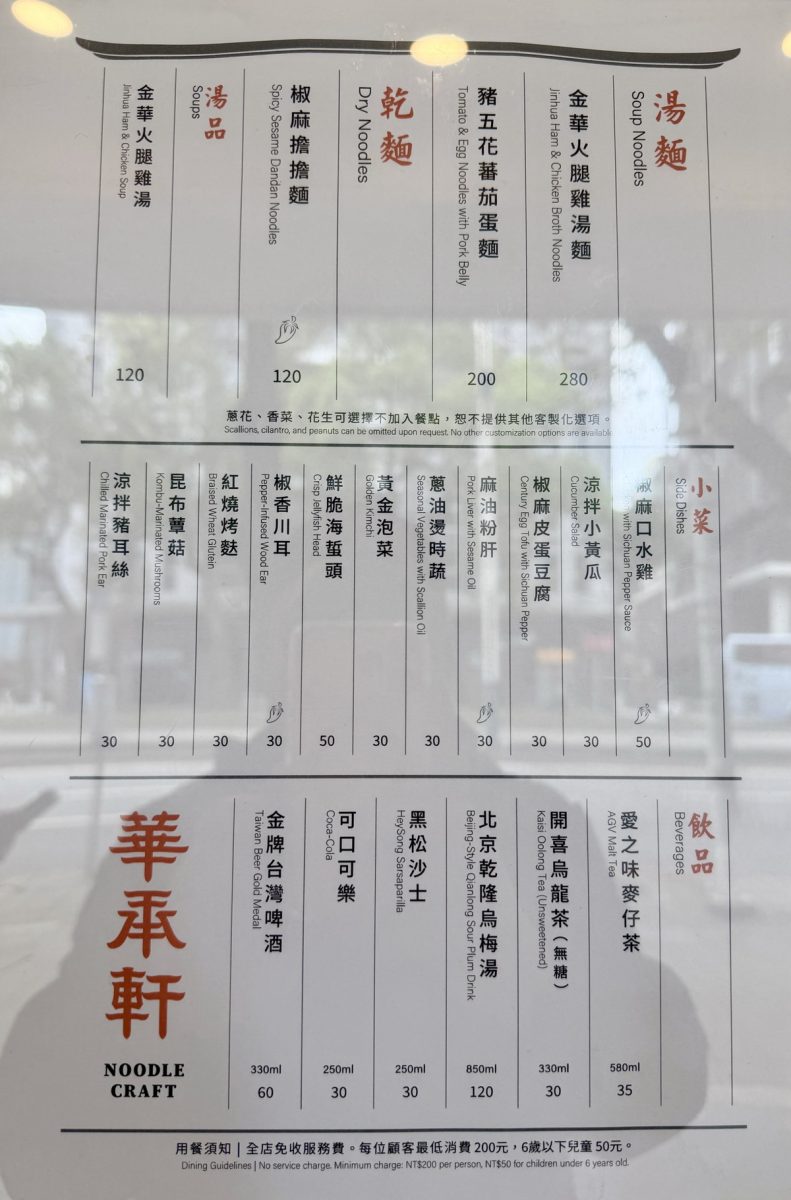 湯麵
Soup Noodles
金華火腿雞湯麵
Jinhua Ham & Chicken Broth Noodles
280
豬五花蕃茄蛋麵
Tomato & Egg Noodles with Pork Belly
200
乾麵
Dry Noodles
椒麻擔擔麵
Spicy Sesame Dandan Noodles
120
湯品
Soups
金華火腿雞湯
Jinhua Ham & Chicken Soup
120
蔥花、香菜、花生可選擇不加入餐點，恕不提供其他客製化選項。
Scallions, cilantro, and peanuts can be omitted upon request. No other customization options are available.
小菜
Side Dishes
椒麻口水雞
with Sichuan Pepper Sauce
50
涼拌小黃瓜
Cucumber Salad
30
椒麻皮蛋豆腐
Century Egg Tofu with Sichuan Pepper
30
麻油粉肝
Pork Liver with Sesame Oil
30
蔥油燙時蔬
Seasonal Vegetables with Scallion Oil
30
黃金泡菜
Golden Kimchi
30
鮮脆海蜇頭
Crisp Jellyfish Head
50
椒香川耳
Pepper-Infused Wood Ear
30
紅燒烤麩
Braised Wheat Glutein
30
昆布蕈菇
Kombu-Marinated Mushrooms
30
涼拌豬耳絲
Chaled Marinated Pork Ear
30
飲品
Beverages
愛之味麥仔茶
AGV Malt Tea
580ml
35
開喜烏龍茶（無糖）
Kaisi Oolong Tea (Unsweetened)
330ml
30
北京乾隆烏梅湯
Beijing-Style Qianlong Sour Plum Drink
850ml
120
黑松沙士
HeySong Sarsaparilla
250ml
30
可口可樂
Coca-Cola
250ml
30
金牌台灣啤酒
Taiwan Beer Gold Medal
330ml
60
華承軒
NOODLE
CRAFT
用餐須知 | 全店免收服務費。每位顧客最低消費 200元，6歲以下兒童 50元。
Dining Guidelines | No service charge. Minimum charge: NT$200 per person, NT$50 for children under 6 years old.